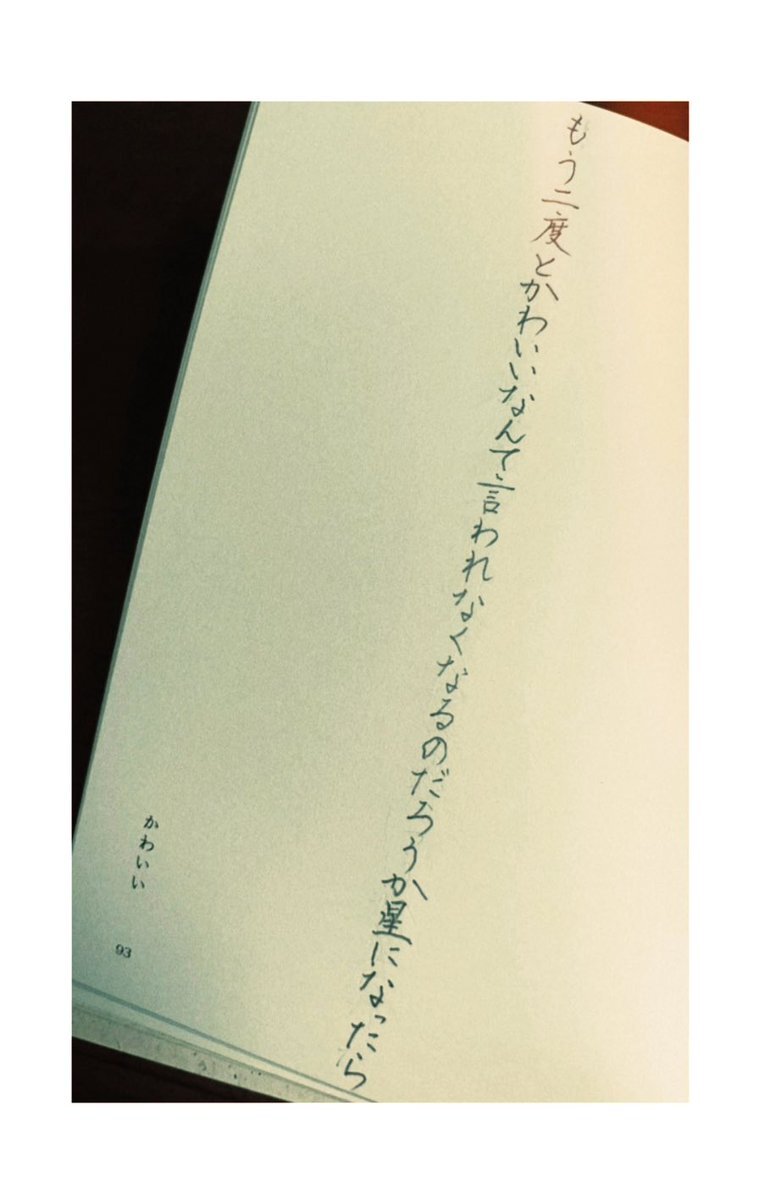 もう二度とかわいいなんて言われなくなるのだろうか星になったら
かわいい
93